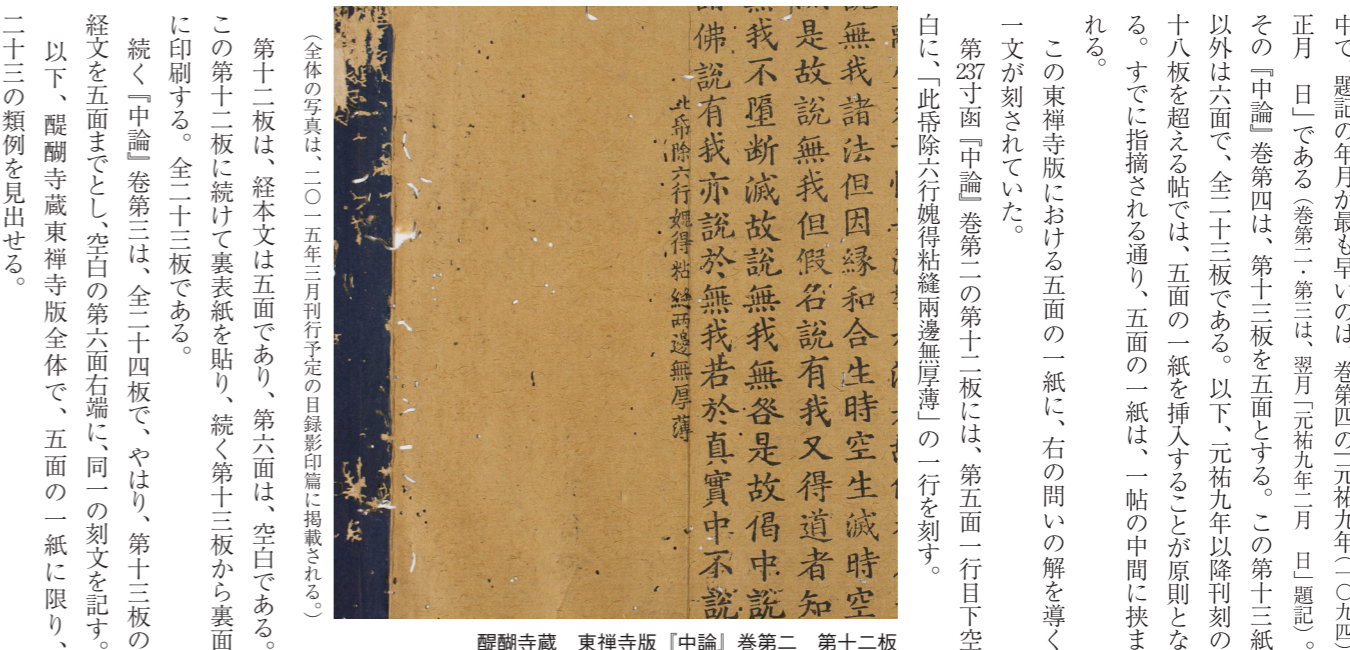 中で、題記の年月が最も早いのは、巻第四の「元祐九年(一〇九四)
正月　日」である(巻第二・第三は、翌月「元祐九年二月　日」題記)。
その『中論』巻第四は、第十三板を五面とする。この第十三紙
以外は六面で、全二十三板である。以下、元祐九年以降刊刻の
十八板を超える帖では、五面の一紙を挿入することが原則とな
る。すでに指摘される通り、五面の一紙は、一帖の中間に挟ま
れる。
この東禅寺版における五面の一紙に、右の問いの解を導く
一文が刻されていた。
第237寸函『中論』巻第二の第十二板には、第五面一行目下空
白に、「此帋除六行媿得粘縫兩邊無厚薄」の一行を刻す。
無我諸法但因縁和合生時空生滅時空
是故説無我但假名説有我又得道者知
無我不墮断滅故説無我無咎是故偈中説
諸佛説有我亦説於無我若於真實中不説
此帋除六行媿得粘縫兩邊無厚薄
醍醐寺蔵　東禅寺版『中論』巻第二　第十二板
(全体の写真は、二〇一五年三月刊行予定の目録影印篇に掲載される。)
第十二板は、経本文は五面であり、第六面は、空白である。
この第十二板に続けて裏表紙を貼り、続く第十三板から裏面
に印刷する。全二十三板である。
続く『中論』巻第三は、全二十四板で、やはり、第十三板の
経文を五面までとし、空白の第六面右端に、同一の刻文を記す。
以下、醍醐寺蔵東禅寺版全体で、五面の一紙に限り、
二十三の類例を見出せる。